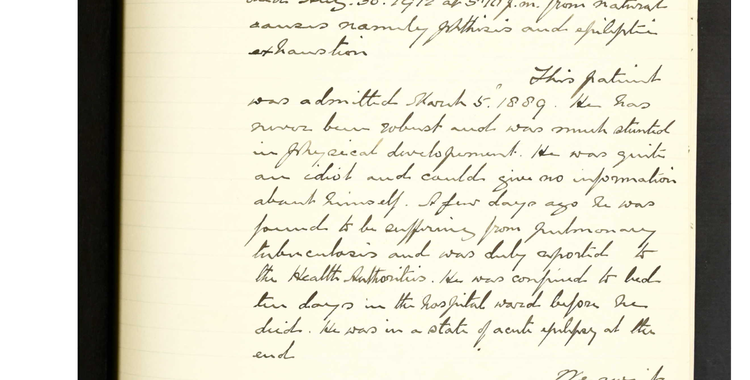 died Aug. 30. 1912 at 5.10 p.m. from natural
causes namely phthisis and epileptic
exhaustion
This patient
was admitted March 5. 1889. He has
never been robust and was much stunted
in physical development. He was quite
an idiot and could give no information
about himself. A few days ago he was
found to be suffering from pulmonary
tuberculosis and was duly reported to
the Health Authorities. He was confined to bed
ten days in the hospital ward before he
died. He was in a state of acute epilepsy at the
end